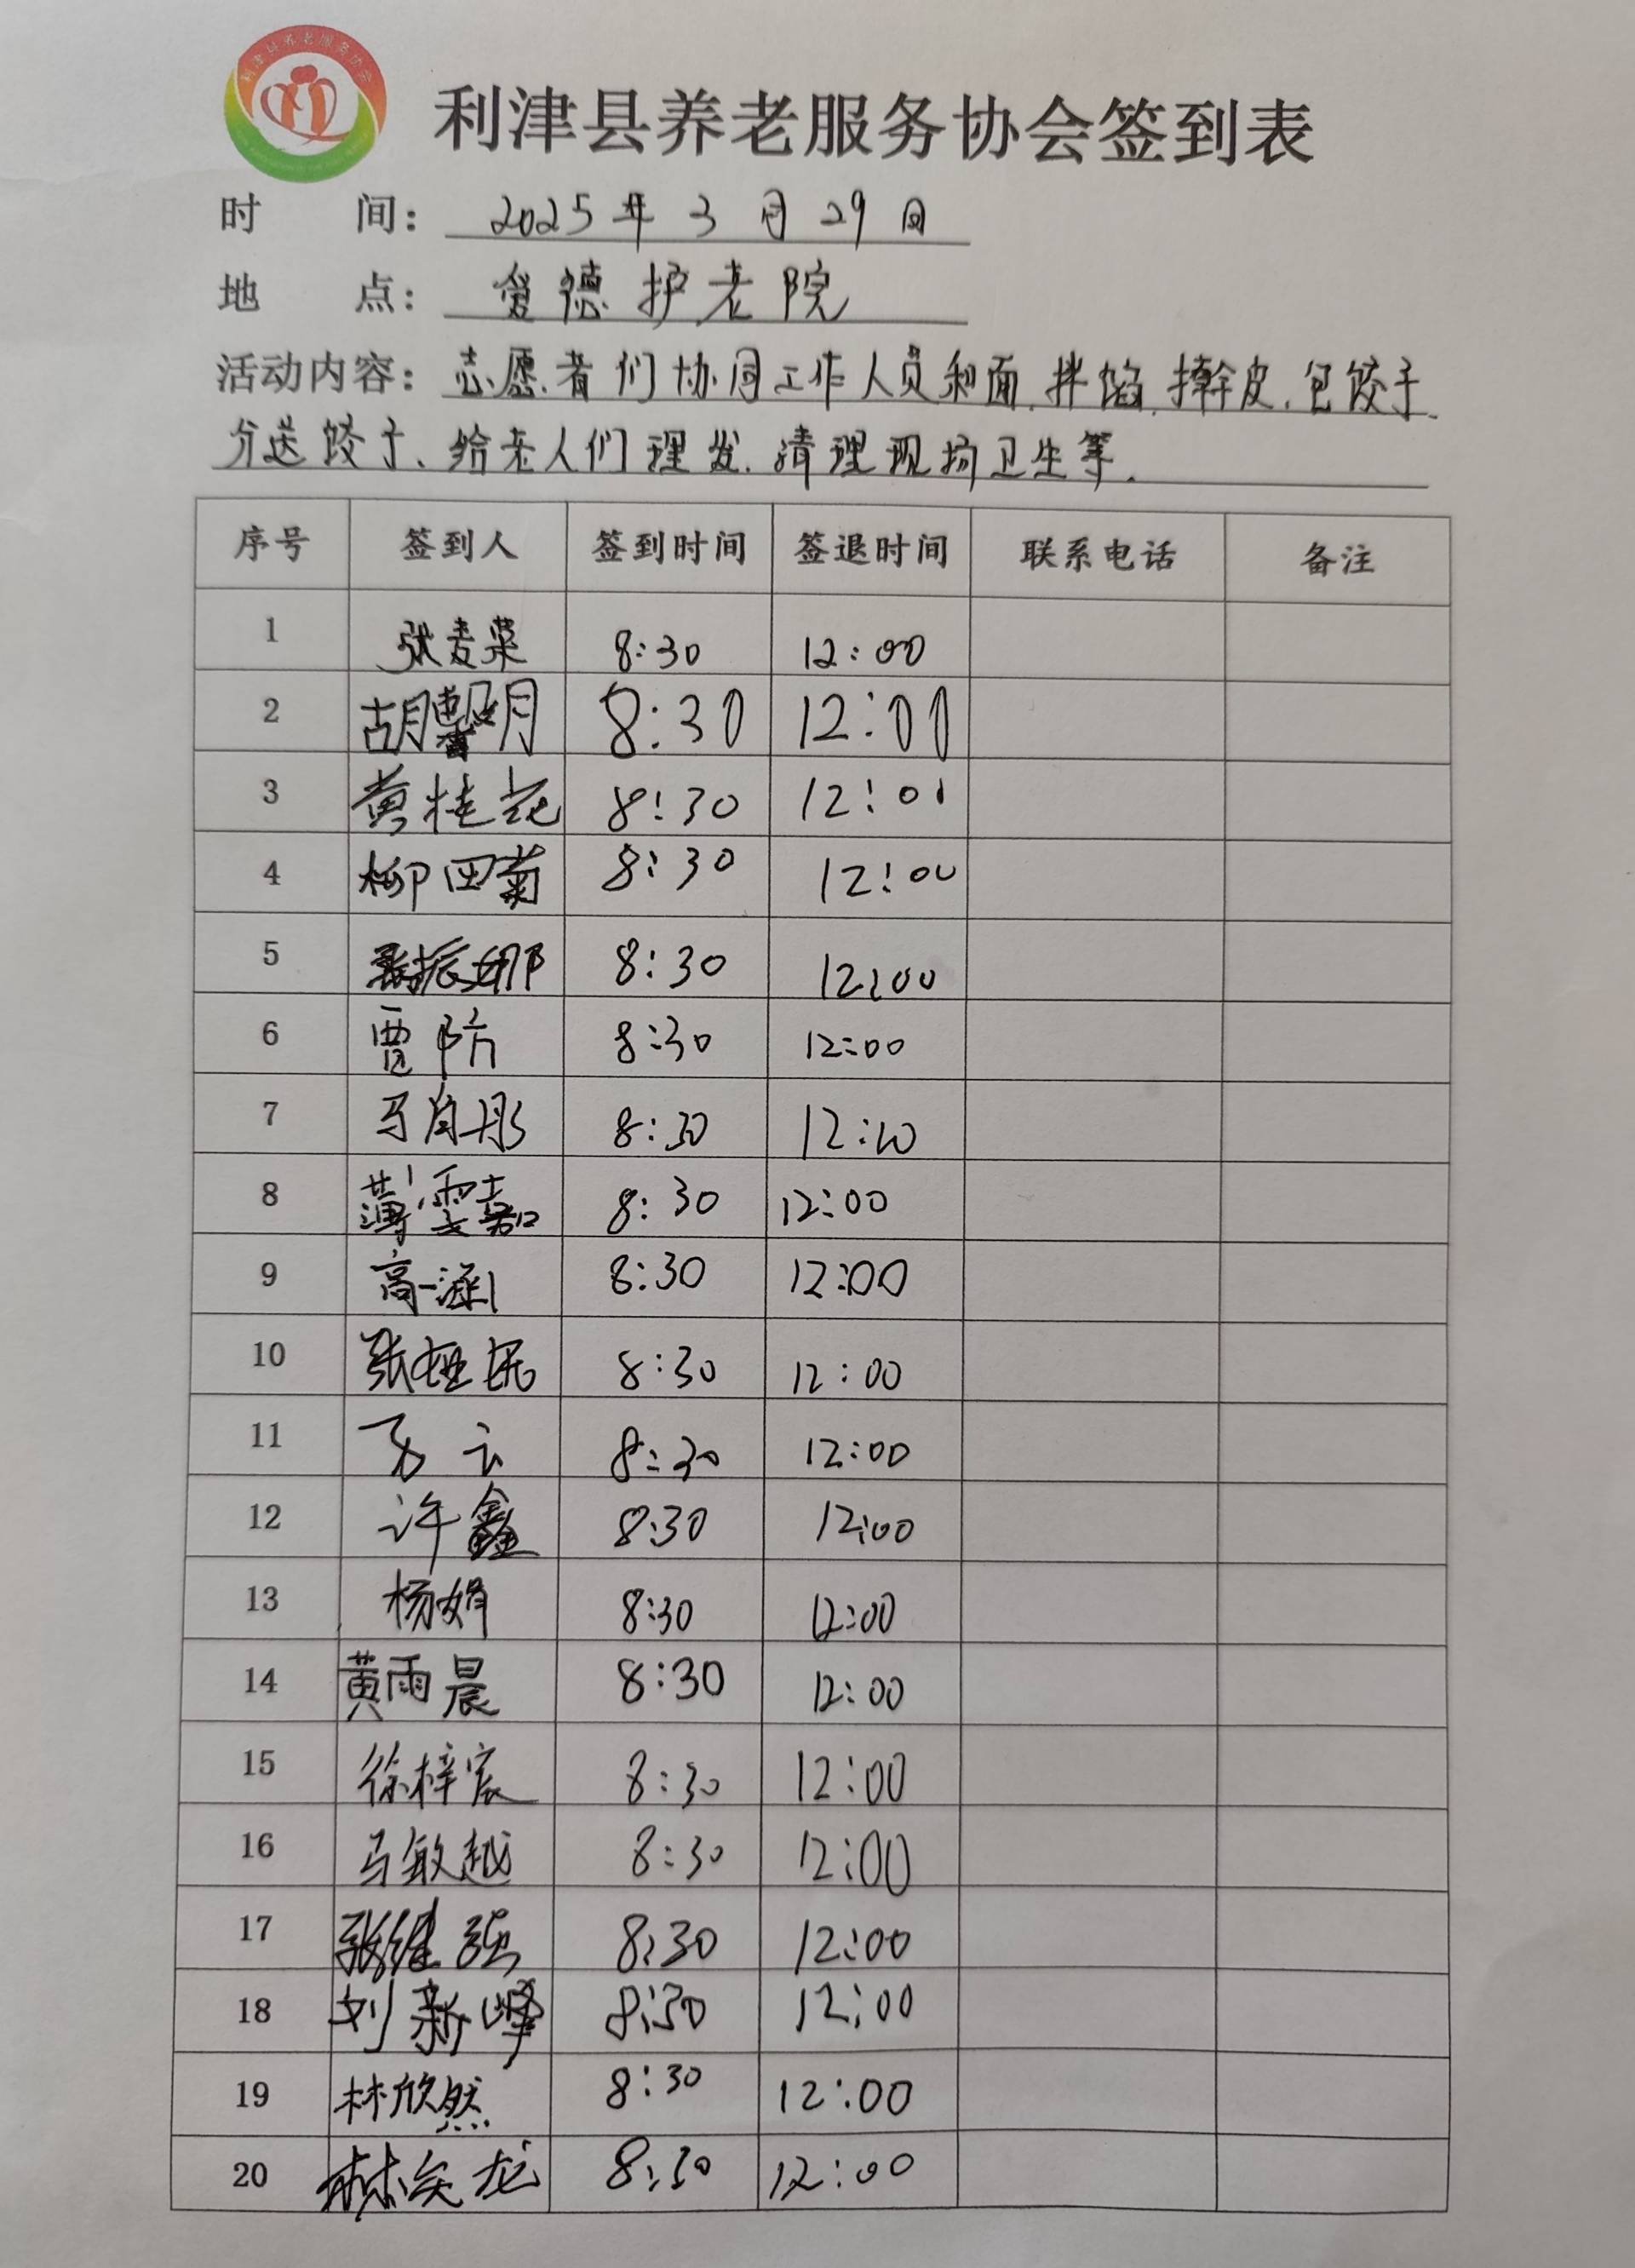 利津县养老服务协会
利津县养老服务协会签到表
时 间: 2025年3月29日
地 点: 爱德护老院
活动内容: 志愿者们协同工作人员和面、拌馅、擀皮、包饺子、
分送饺子、给老人们理发、清理现场卫生等。
序号 签到人 签到时间 签退时间 联系电话 备注
1 张麦荣 8:30 12:00
2 胡馨月 8:30 12:00
3 黄桂花 8:30 12:00
4 柳田菊 8:30 12:00
5 振娜 8:30 12:00
6 贾防 8:30 12:00
7 马肖彤 8:30 12:00
8 薄雯嘉 8:30 12:00
9 高一涵 8:30 12:00
10 张 8:30 12:00
11 8:30 12:00
12 许鑫 8:30 12:00
13 杨娟 8:30 12:00
14 黄雨晨 8:30 12:00
15 徐梓宸 8:30 12:00
16 马敏越 8:30 12:00
17 张继强 8:30 12:00
18 刘新峰 8:30 12:00
19 林欣然 8:30 12:00
20 龙 8:30 12:00